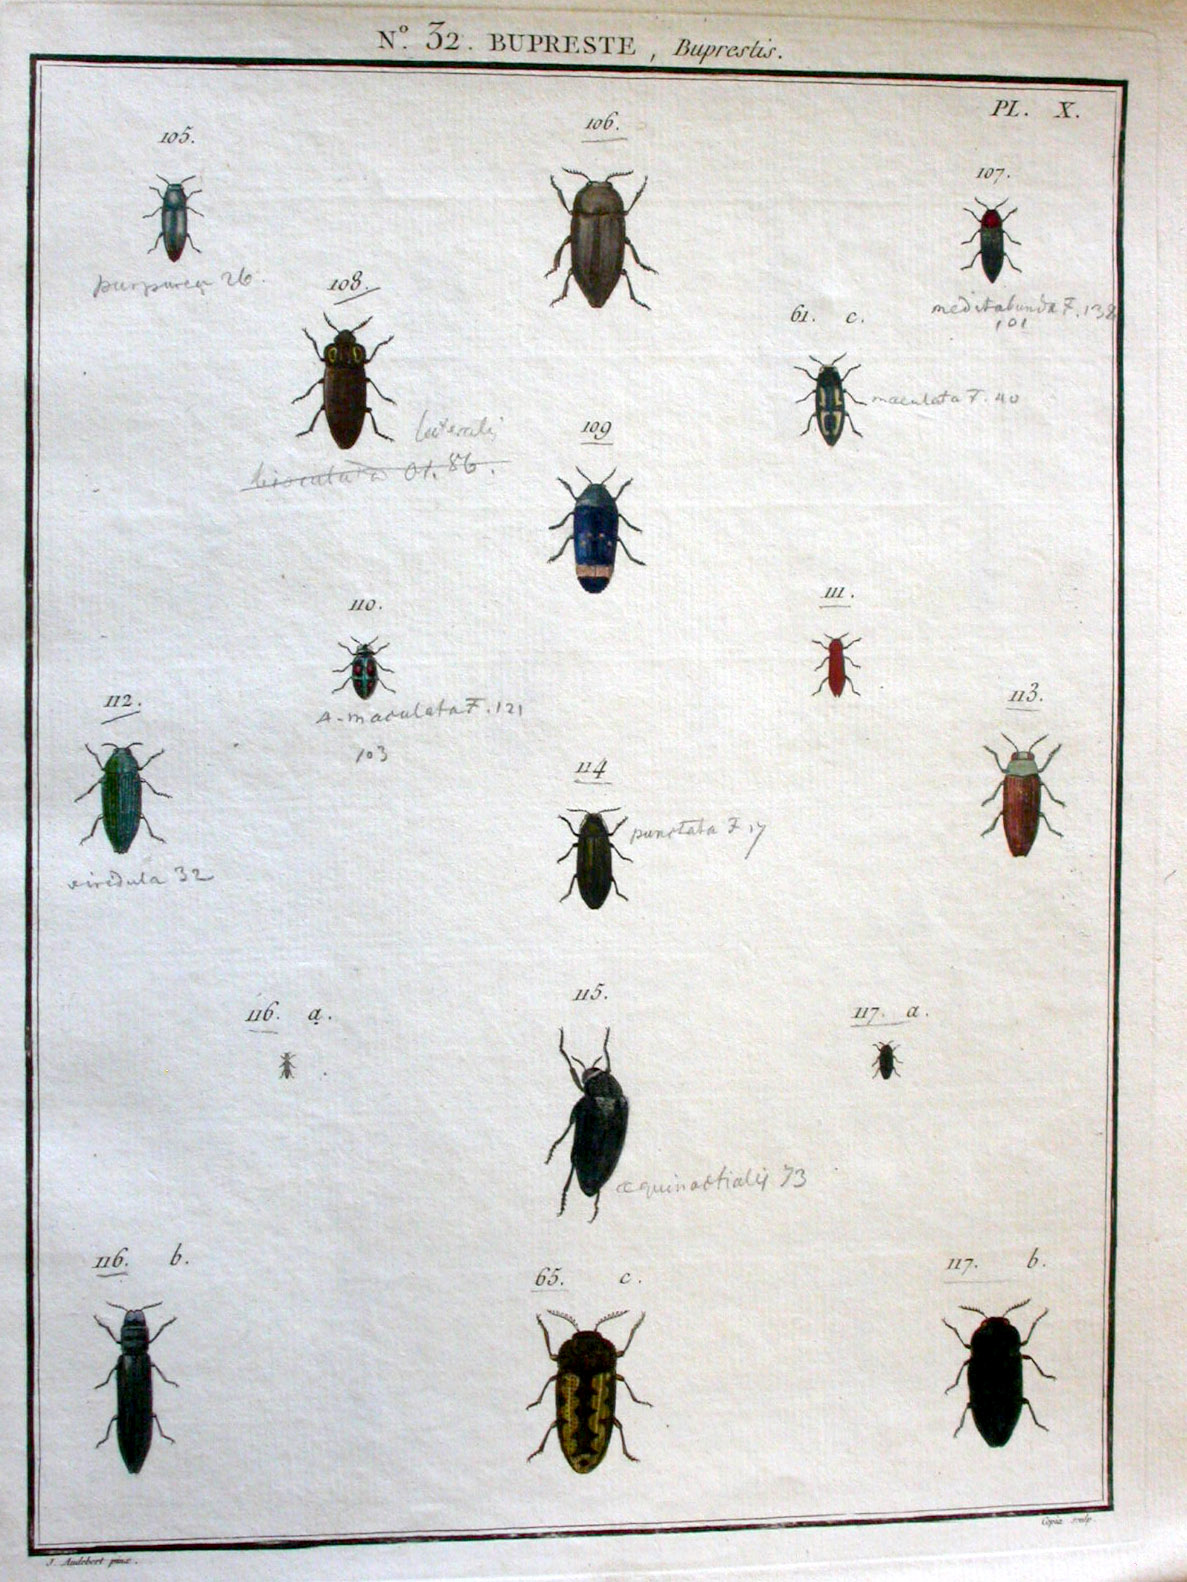 Nº. 32. BUPRESTE, Buprestis.
PL. X.
105.
106.
107.
purpurea 26.
meditabunda F. 138
101
108.
61. c.
maculata F. 40
lateralis
01. 86.
109
110.
111.
A-maculata F. 121
103
112.
113.
114
punctata F 17
viridula 32
115.
116. a.
117. a.
æquinoctialis 73
116. b.
65. c.
117. b.
J. Audebert pinx.
Copia sculp.